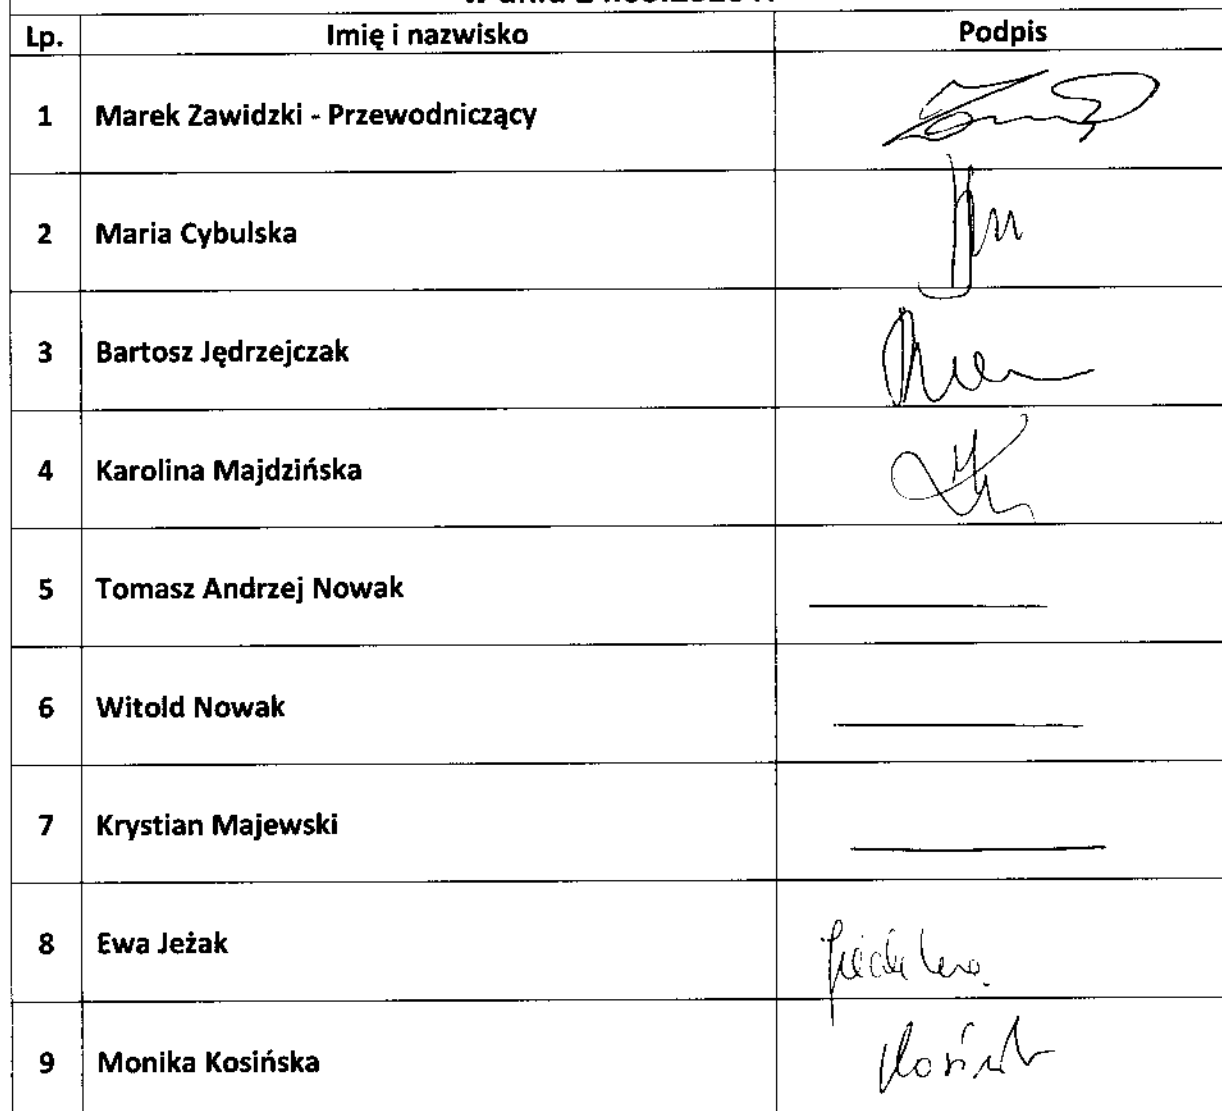 Lp. Imię i nazwisko Podpis
1 Marek Zawidzki - Przewodniczący
2 Maria Cybulska
3 Bartosz Jędrzejczak
4 Karolina Majdzińska
5 Tomasz Andrzej Nowak
6 Witold Nowak
7 Krystian Majewski
8 Ewa Jeżak
9 Monika Kosińska